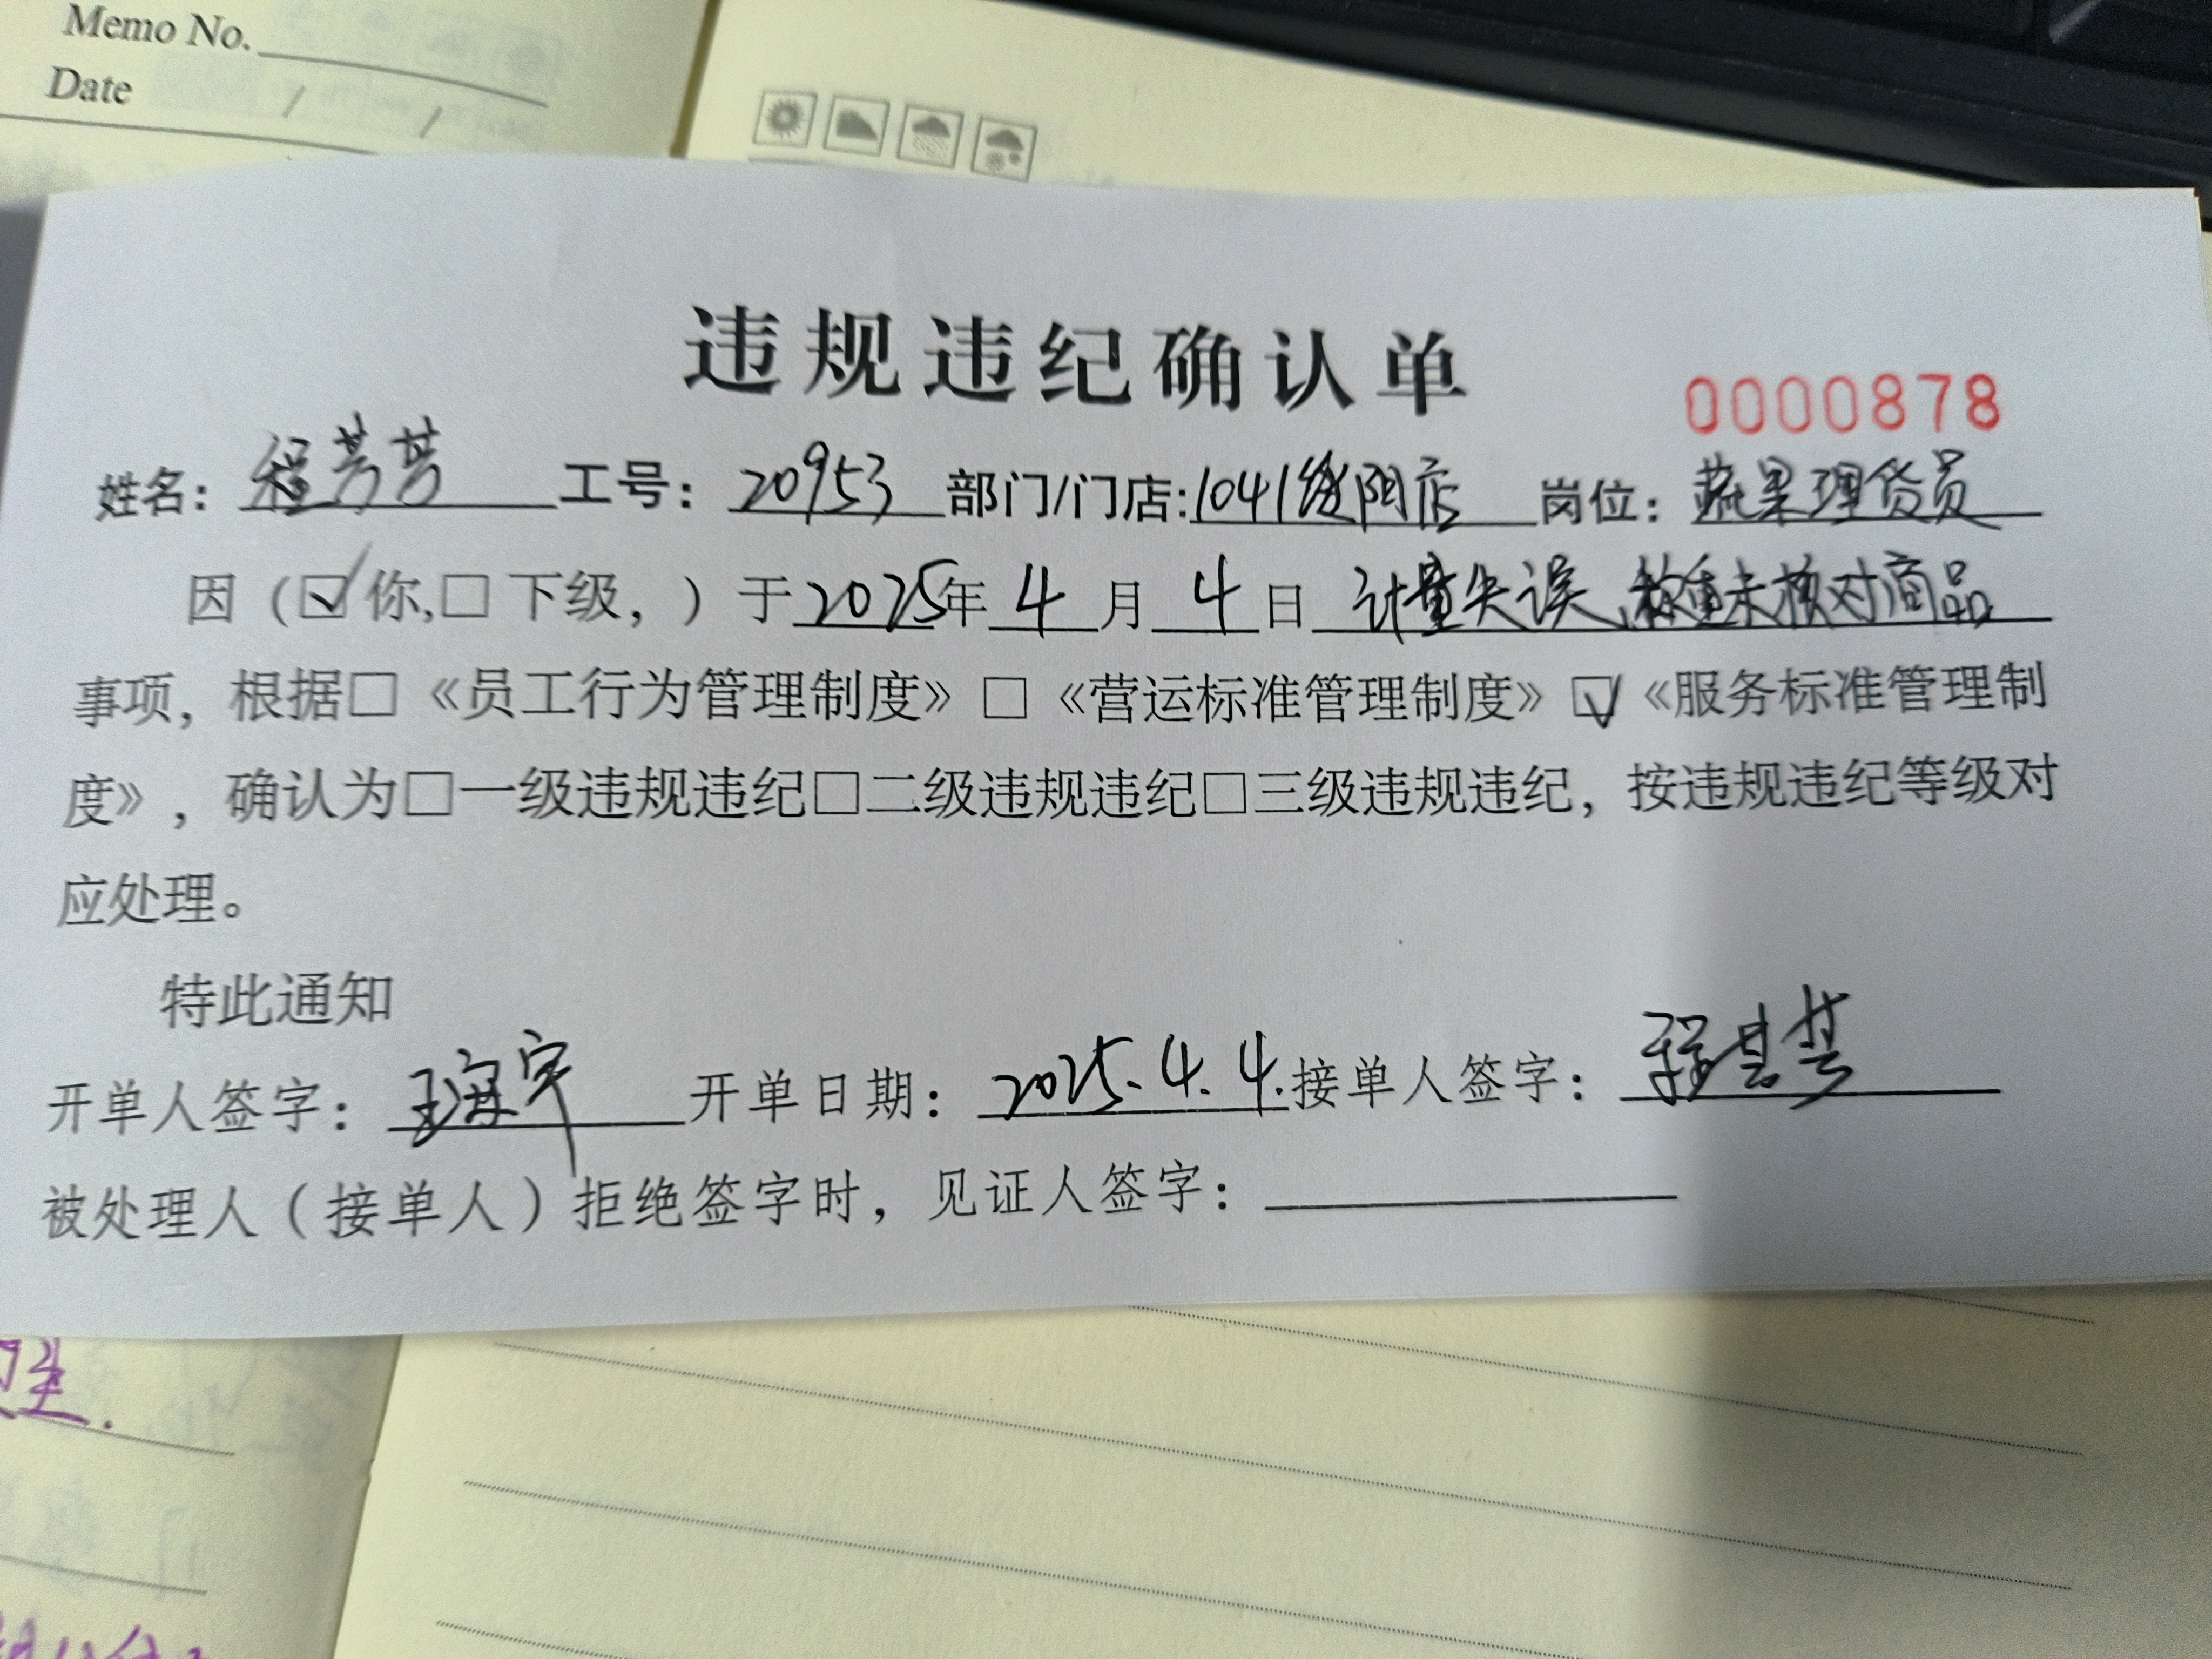 Memo No.
Date / /
违规违纪确认单
0000878
姓名：程芳芳 工号：20953 部门/门店:1041绥阳店 岗位：蔬果理货员
因（☑你,□下级，）于2025年4月4日 计量失误、称重未核对商品
事项，根据□《员工行为管理制度》□《营运标准管理制度》☑《服务标准管理制
度》，确认为□一级违规违纪□二级违规违纪□三级违规违纪，按违规违纪等级对
应处理。
特此通知
开单人签字： 开单日期：2025.4.4.接单人签字：
被处理人（接单人）拒绝签字时，见证人签字：